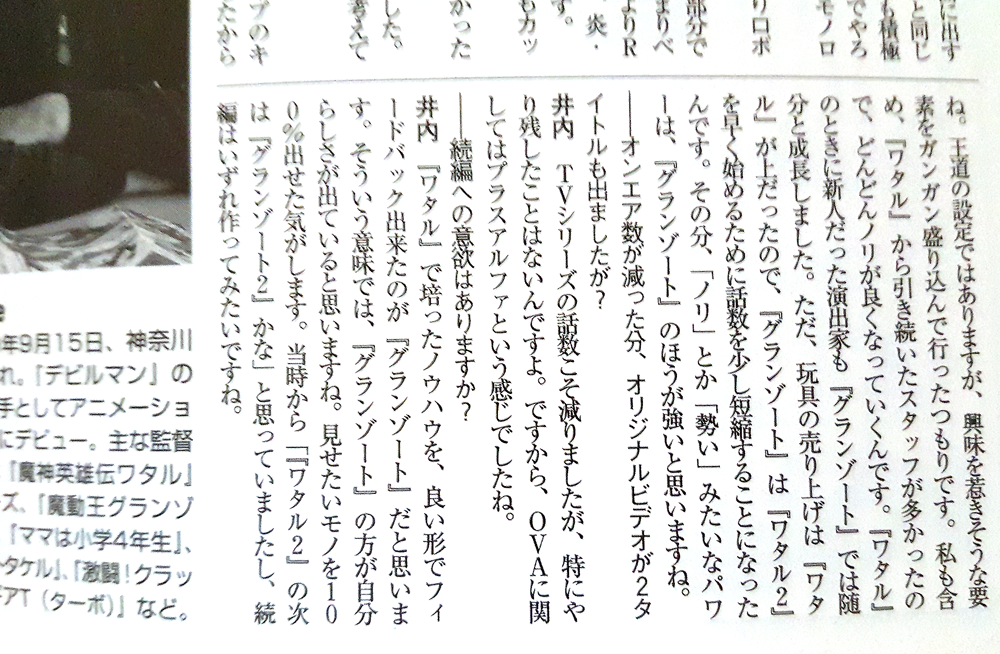 に出す
と同じ
も積極
でやろ
モノロ
りロボ
部分で
まりベ
よりR
、炎・
す。
もカッ
かった
した。
考えて
プのキ
たから
ね。王道の設定ではありますが、興味を惹きそうな要
素をガンガン盛り込んで行ったつもりです。私も含
め、『ワタル』から引き続いたスタッフが多かったの
で、どんどんノリが良くなっていくんです。『ワタル』
のときに新人だった演出家も『グランゾート』では随
分と成長しました。ただ、玩具の売り上げは『ワタ
ル』が上だったので、『グランゾート』は『ワタル2』
を早く始めるために話数を少し短縮することになった
んです。その分、「ノリ」とか「勢い」みたいなパワ
ーは、『グランゾート』のほうが強いと思いますね。
――オンエア数が減った分、オリジナルビデオが2タ
イトルも出ましたが?
井内　TVシリーズの話数こそ減りましたが、特にや
り残したことはないんですよ。ですから、OVAに関
してはプラスアルファという感じでしたね。
――続編への意欲はありますか?
井内　『ワタル』で培ったノウハウを、良い形でフィ
ードバック出来たのが『グランゾート』だと思いま
す。そういう意味では、『グランゾート』の方が自分
らしさが出ていると思いますね。見せたいモノを10
0%出せた気がします。当時から「『ワタル2』の次
は『グランゾート2』かな」と思っていましたし、続
編はいずれ作ってみたいですね。
e
年9月15日、神奈川
れ。「デビルマン」の
手としてアニメーショ
にデビュー。主な監督
「魔神英雄伝ワタル」
ズ、「魔動王グランゾ
「ママは小学4年生」、
タケル」、「激闘!クラッ
ギアT(ターボ)」など。